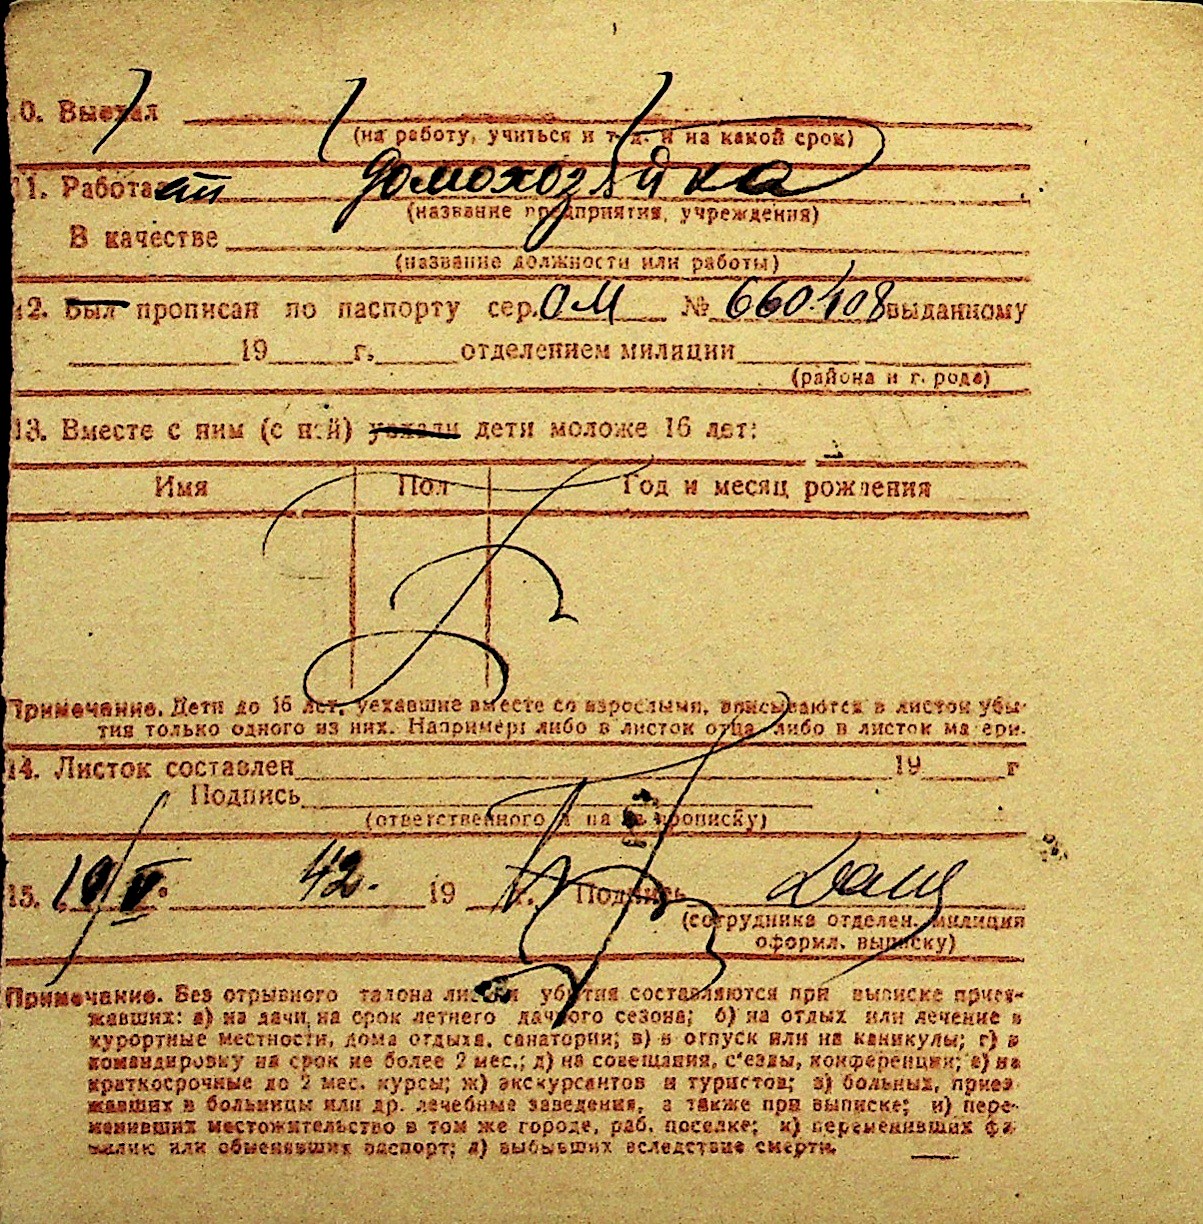 10. Выехал
(на работу, учиться и т. д. и на какой срок)
11. Работает домохозяйка
(название предприятия, учреждения)
В качестве
(название должности или работы)
12. Был прописан по паспорту сер. ОМ № 660408 выданному
19 г. отделением милиции
(района и г. рода)
13. Вместе с ним (с ней) уехали дети моложе 16 лет:
Имя Пол Год и месяц рождения
Примечание. Дети до 16 лет, уехавшие вместе со взрослыми, вписываются в листок убы-
тия только одного из них. Например: либо в листок отца, либо в листок ма ери.
14. Листок составлен 19 г
Подпись
(ответственного за прописку)
15. 19/V 42. 19 г. Подпись
(сотрудника отделен. милиции
оформл. выписку)
Примечание. Без отрывного талона листки убытия составляются при выписке приез-
жавших: а) на дачи на срок летнего дачного сезона; б) на отдых или лечение в
курортные местности, дома отдыха, санатории; в) в отпуск или на каникулы; г) в
командировку на срок не более 2 мес.; д) на совещания, с'езды, конференции; е) на
краткосрочные до 2 мес. курсы; ж) экскурсантов и туристов; з) больных, приез-
жавших в больницы или др. лечебные заведения, а также при выписке; и) пере-
менивших местожительство в том же городе, раб. поселке; к) переменивших фа-
милию или обменявших паспорт; л) выбывших вследствие смерти.